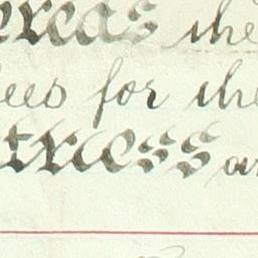 ereas the
ees for the
tness a